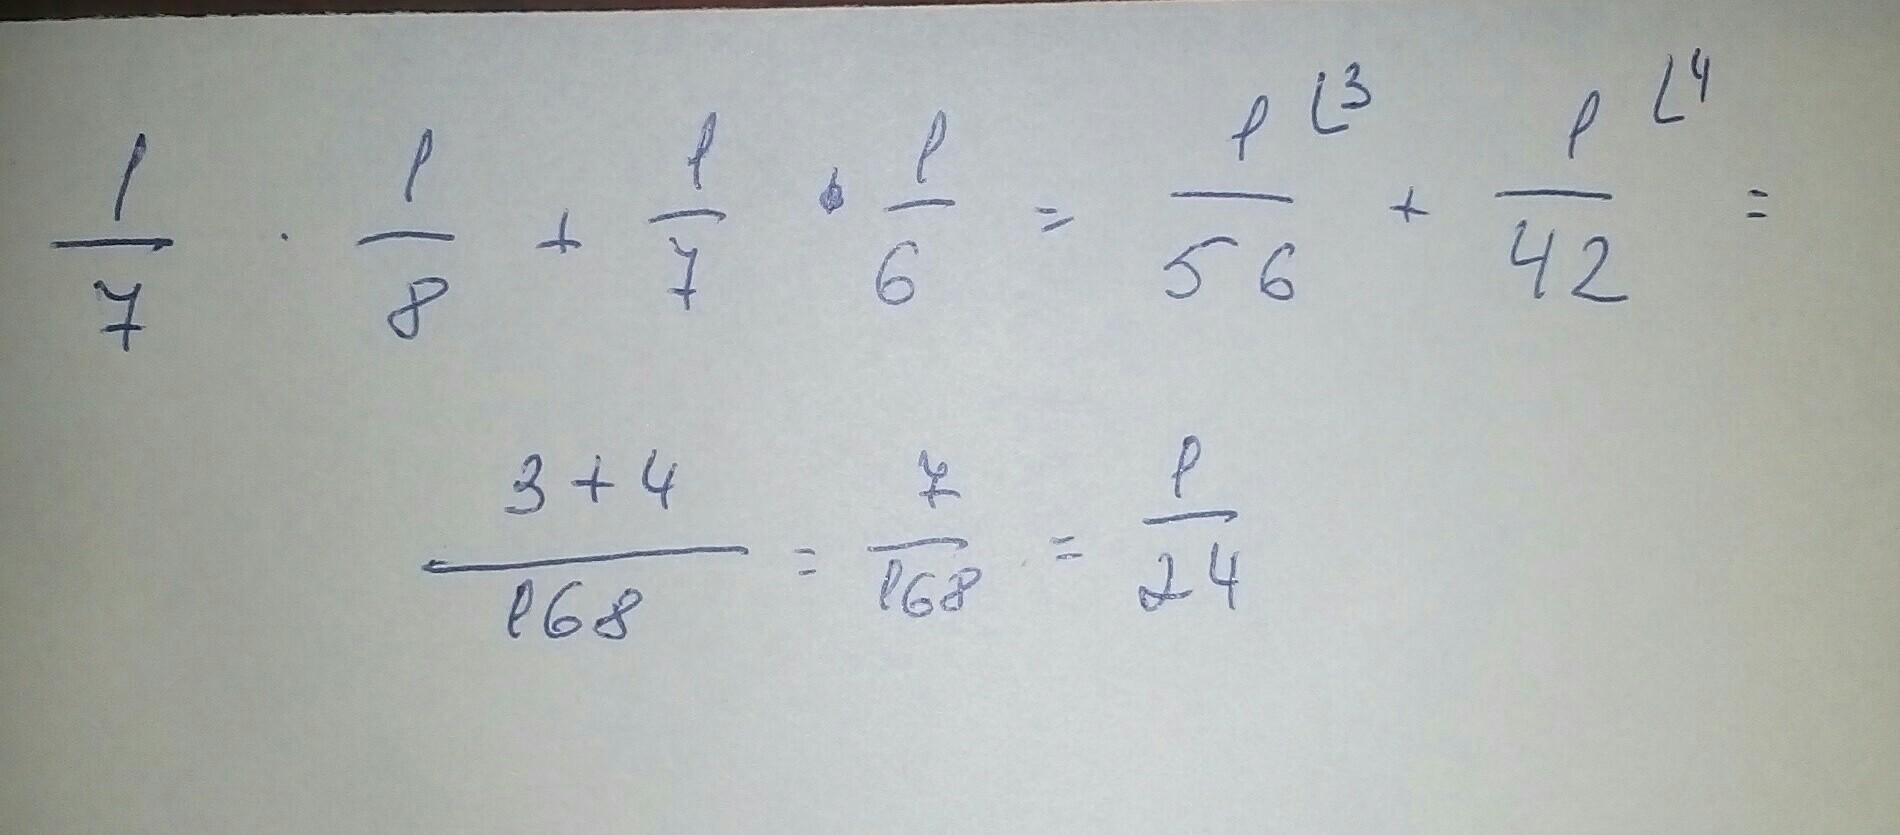 1/7 · 1/8 + 1/7 · 1/6 = 1/56 ⌊3 + 1/42 ⌊4 =
3+4/168 = 7/168 = 1/24